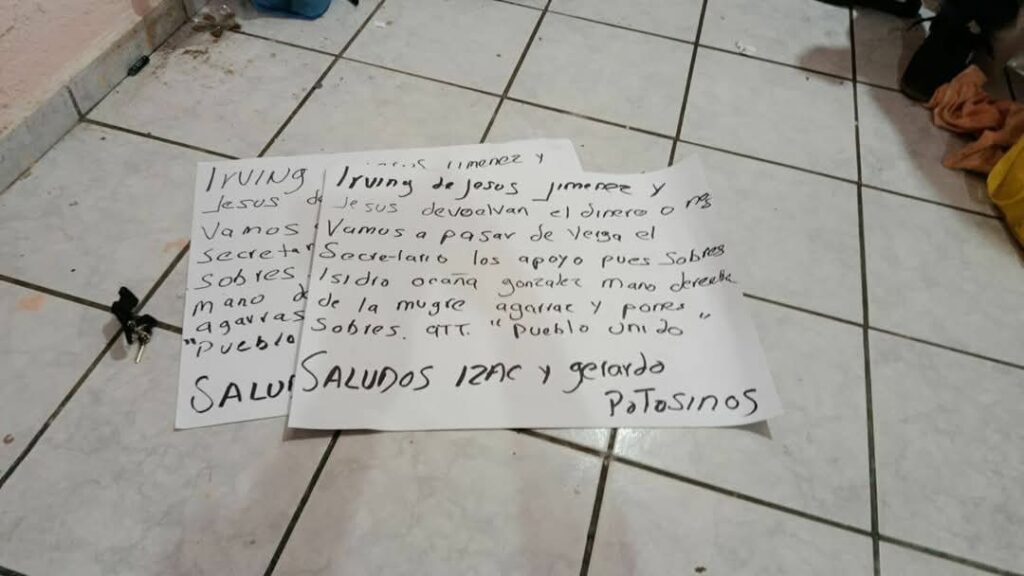 IRVING
Jesus de
Vamos
secretar
sobres
mano d
agarras
"pueblo
SALU
Jimenez y
Irving de Jesus Jimenez y
Jesus devuelvan el dinero o nos
Vamos a pasar de Verga el
Secretario los apoyo pues Sobres
Isidro ocaña gonzalez mano derecha
de la mugre agarrac y pones
Sobres. ATT. "Pueblo unido"
SALUDOS IZAC y gerardo
POTOSINOS